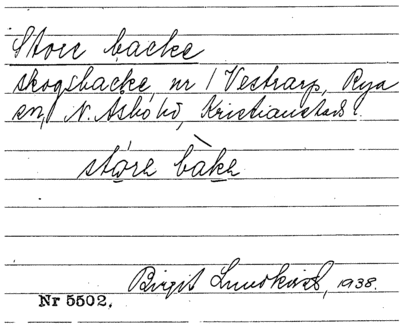 Store backe
skogsbacke, nr 1 Vestrarp, Rya
sn, N. Åsbo hd, Kristianstads.
stóre bàke
Birgit Lundkvist, 1938.
Nr 5502.